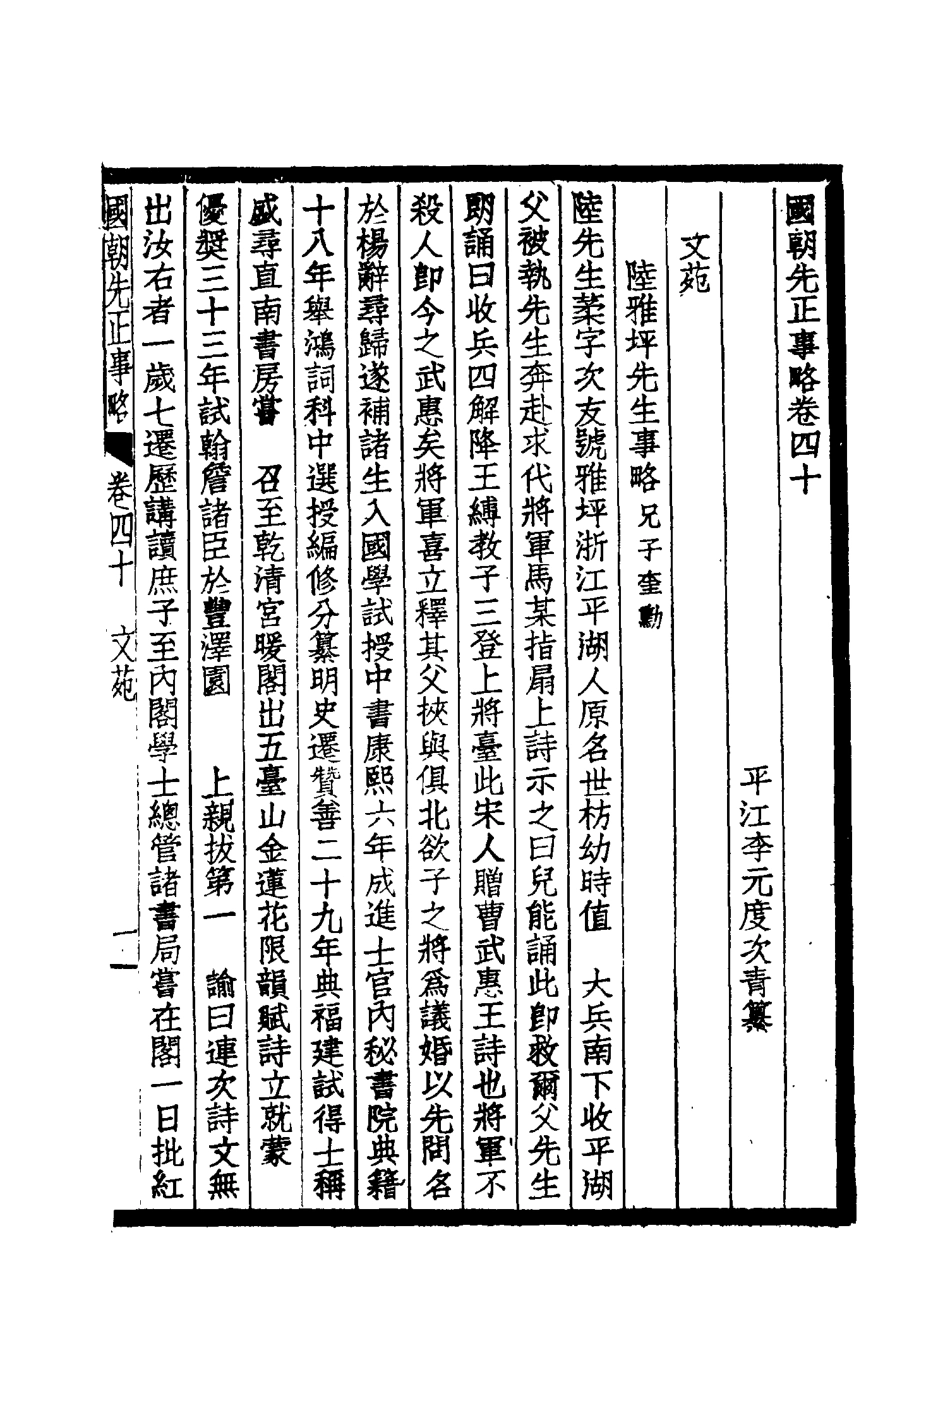 國朝先正事略卷四十
平江李元度次青纂
文苑
陸雅坪先生事略兄子奎勳
陸先生葇字次友號雅坪浙江平湖人原名世枋幼時值　大兵南下收平湖
父被執先生奔赴求代將軍馬某指扇上詩示之曰兒能誦此卽救爾父先生
朗誦曰收兵四解降王縛教子三登上將臺此宋人贈曹武惠王詩也將軍不
殺人卽今之武惠矣將軍喜立釋其父挾與俱北欲子之將爲議婚以先問名
於楊辭尋歸遂補諸生入國學試授中書康熙六年成進士官內秘書院典籍
十八年舉鴻詞科中選授編修分纂明史遷贊善二十九年典福建試得士稱
盛尋直南書房嘗　召至乾清宮暖閣出五臺山金蓮花限韻賦詩立就蒙
優獎三十三年試翰詹諸臣於豐澤園　上親拔第一　諭曰連次詩文無
出汝右者一歲七遷歷講讀庶子至內閣學士總管諸書局嘗在閣一日批紅
國朝先正事略　卷四十　文苑　一